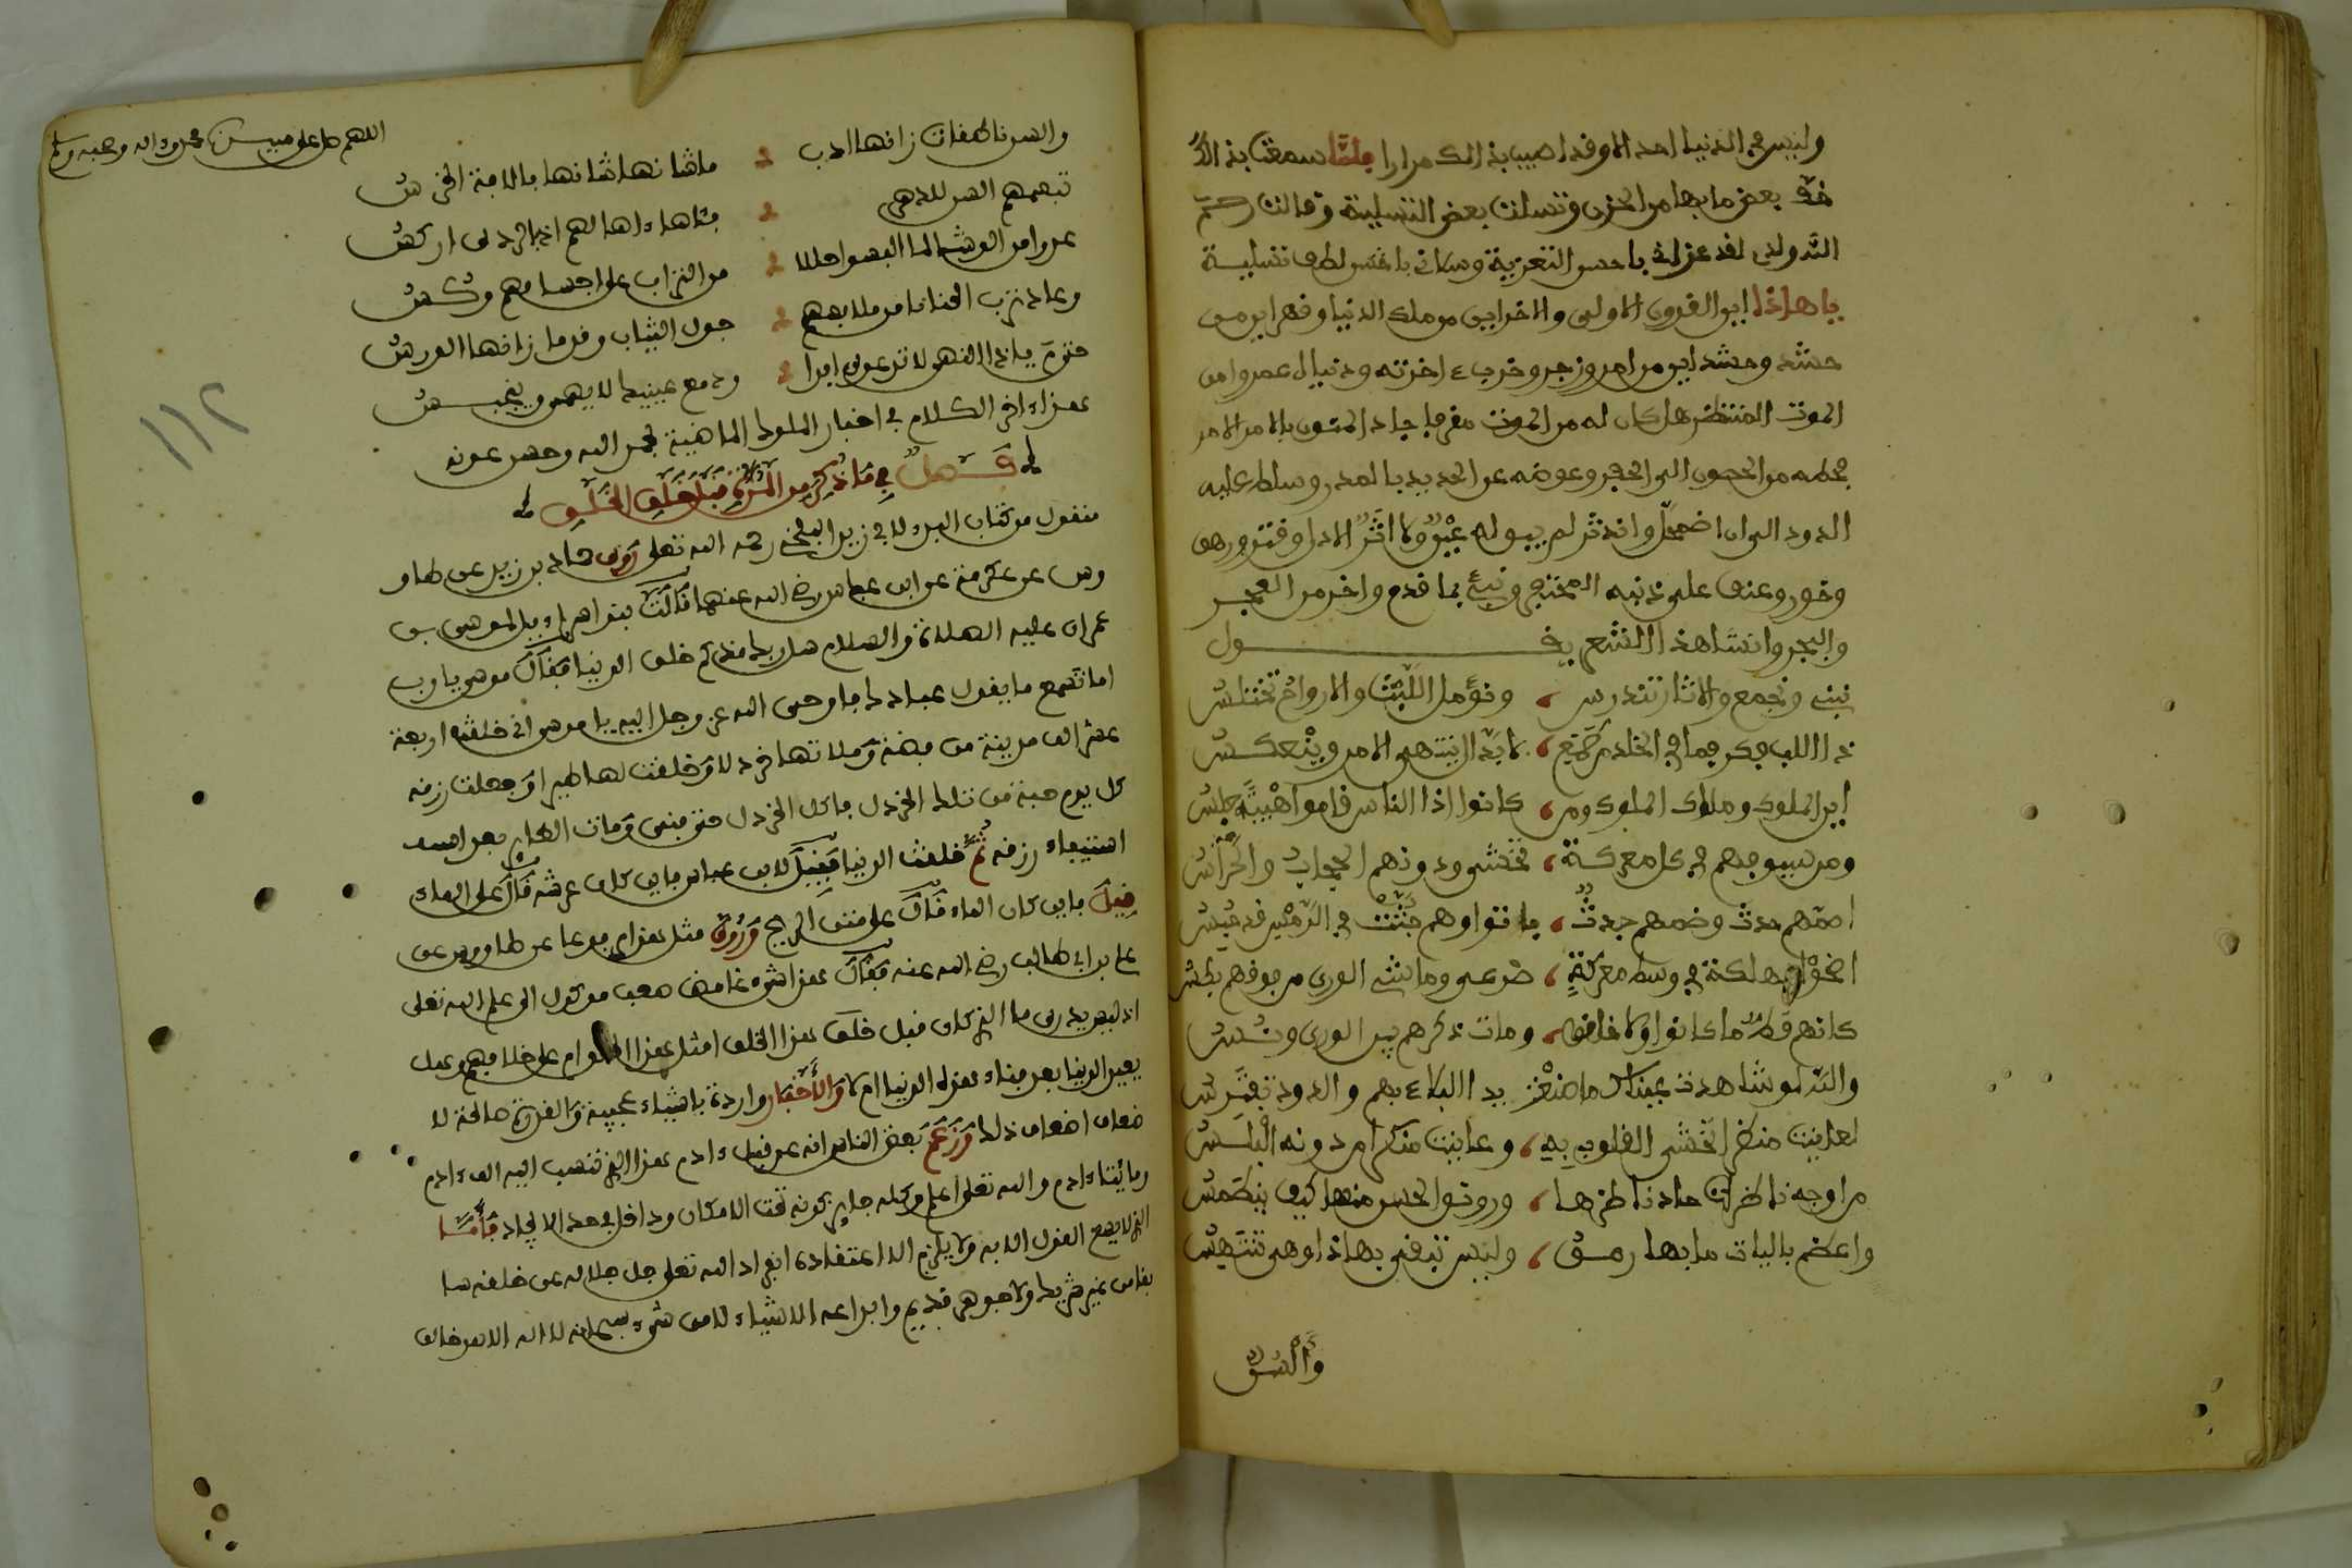 وليس في الدنيا احد الا وقد اصيب بذالك مرارا فلما سمعت بذالك
خف بعض ما بها من الحزن وتسلت بعض التسلية وقالت رحم
الله ولدي لقد عزاني باحسن التعزية وسلاني بالطف تسلية
يا هاذا اين القرون الاولى والاخر اين من ملك الدنيا وقهر اين من
حشد وحشر اين من امر وزجر وخرب اخرته ودنياه عمر وامن
الموت المنتظر هل كان له من الموت مفر جاءه المنون بالامر الامر
فحطه من الحصون الى الحفر وعوضه عن الحديد بالمدر وسلط عليه
الدود الى ان اضمحل واندثر لم يبق له عين ولا اثر الا ذل وفتر ورهق
وخور وعنف على ذنبه المحتجر ونبئ بما قدم واخر من العجر
والبجر وانشا هذا الشعر يقول
نبني ونجمع والاثار تندرس ونؤمل اللبث والارواح تختلس
ذا اللب فكر فما في الخلد من طمع لا بد ان ينتهي الامر وينعكس
اين الملوك وملاك الملوك ومن كانوا اذا الناس قاموا هيبة جلس
ومن سيوفهم في كل معركة تخشى ودونهم الحجاب والحرس
اصمهم حدث وضمهم جدث باتوا وهم جثث في الرمس قد حبس
اضحوا بمهلكة في وسط معركة صرعى وماشي الورى من فوقهم يطس
كانهم قط ما كانوا ولا خلقوا ومات ذكرهم بين الورى ونس
والله لو شاهدت عيناك ما صنعت يد البلاء بهم والدود تفترس
لعاينت منظرا تخشى القلوب به وعاينت منكرا من دونه البلس
من اوجه ناظرات حار ناظرها ورونق الحسن منها كيف ينطمس
واعظم باليات ما بها رمق وليس تبقى بهاذا وهي تنتهس
والسن
اللهم صل على سيدنا محمد واله وصحبه وسلم
والسن ناطقات زانها ادب ما شانها شانها بالافة الخرس
تبعهم السن للدهر
عروا من الوشي لما البسوا حللا من التراب على اجسامهم وكسوا
وعاد ترب الفنا من ملابسهم جون الثياب وقدما زانها الورس
حتى م ياذا النهى لا ترعوي ابدا ودمع عينيك لا يهمي وينبجس
هذا اخر الكلام في اخبار الملوك الماضية بحمد الله وحسن عونه
فصل في ما ذكر من المدة قبل خلق الخلق
منقول من كتاب البدء لابي زيد البلخي رحمه الله تعلى روى حماد بن زيد عن طاو
وس عن عكرمة عن ابن عباس رضي الله عنهما قال قالت بنو اسراءيل لموسى بن
عمران عليه الصلاة والسلام سل ربك منذ كم خلق الدنيا فقال موسى يا رب
اما تسمع ما يقول عبادك فاوحى الله عز وجل اليه يا موسى اني خلقت اربعة
عشر الف مدينة من فضة وملاتها خردلا وخلقت لها طيرا وجعلت رزقه
كل يوم حبة من تلك الخردل فاكل الخردل حتى فنى ومات الطاير بعد
استيفاء رزقه ثم خلقت الدنيا فقيل لابن عباس فاين كان عرشه قال على الماء
قيل فاين كان الماء قال على متن الريح وروي مثل هذا مرفوعا عن طاووس عن
علي بن ابي طالب رضي الله عنه فقال هذا شيء غامض صعب موكول الى علم الله تعلى
اذ ليس يدرى ما الذي كان قبل خلق هذا الخلق امثل هذا الخلق ام على خلافهم وهل
يعيد الدنيا بعد فناء هذه الدنيا ام لا والاخبار واردة باشياء عجيبة والقدرة صالحة لا
ضعاف اضعاف ذلك وزعم بعض الناس انه عد قبل ءادم هذا الذي ننسب اليه الف ءادم
ومائتا ءادم والله تعلى اعلم وكله جايز كونه تحت الامكان وداخل في حد الايجاد فاما
الذي لا يصح القول الا به ولا يلزم الا اعتقاده انفراد الله تعلى جل جلاله عن خلقه سا
بقا من غير شريك ولا جوهر قديم وابداعه الاشياء لا من شيء سبحانه لا اله الا هو خالق
١١٢